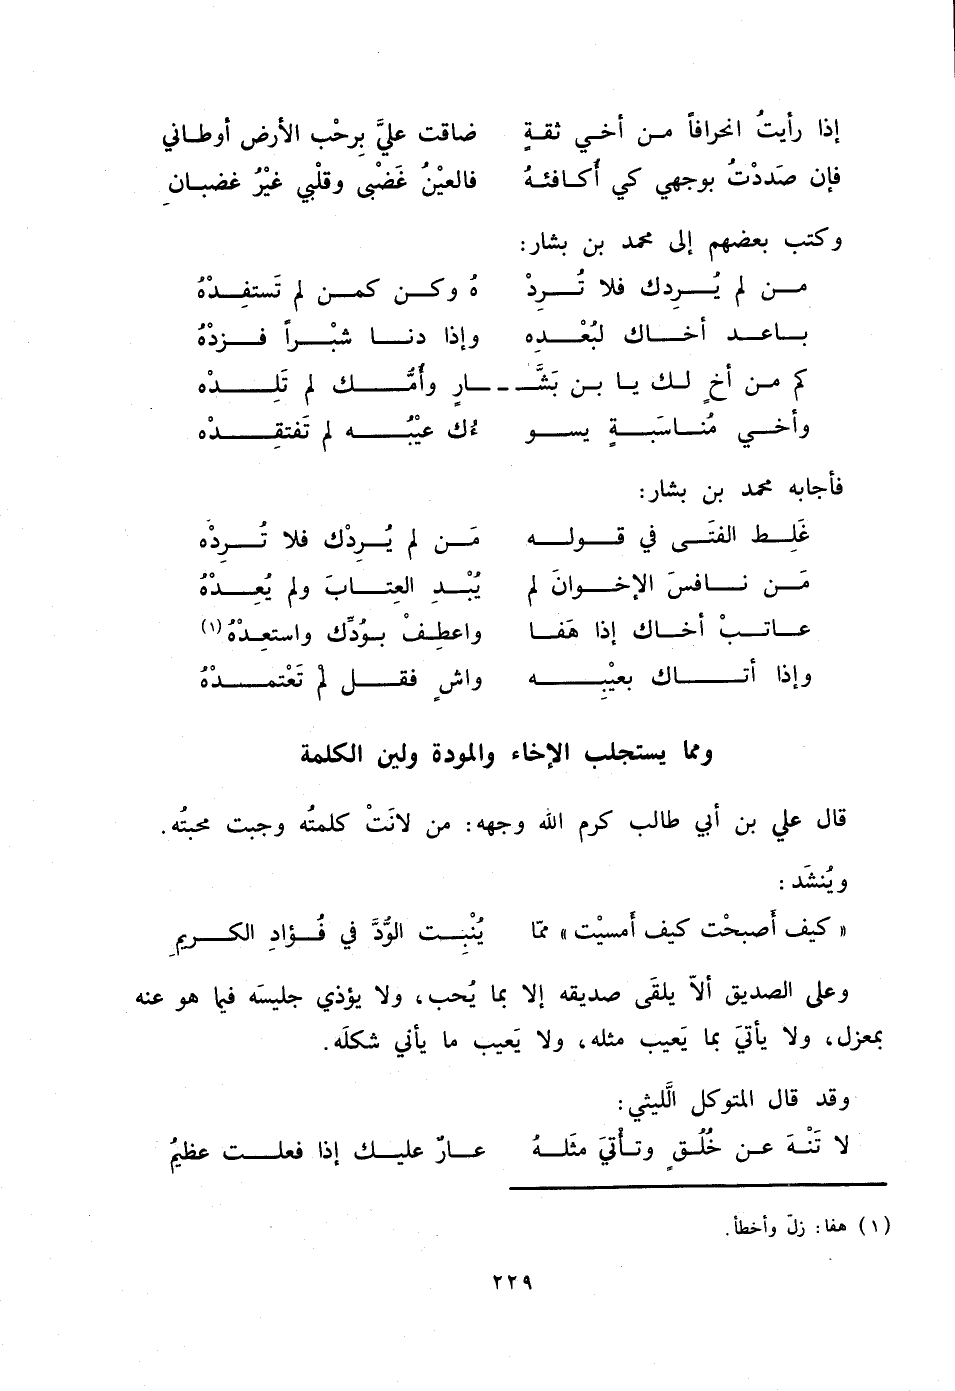 إذا رأيتُ انحرافاً من أخي ثقةٍ ضاقت عليَّ بِرحْب الأرض أوطاني
فإن صَددْتُ بوجهي كي أُكافئهُ فالعيْنُ غَضْبى وقلْبي غيْرُ غضبانِ
وكتب بعضهم إلى محمد بن بشار:
من لم يُردك فلا تُرِدْ هُ وكن كمن لم تَستفِدْهُ
باعد أخاك لبُعْده وإذا دنا شبْراً فزدْهُ
كم من أخٍ لك يا بن بَشَّـ ـارٍ وأمُّك لم تَلِدْه
وأخي مُناسَبةٍ يسو ءُك عيْبُه لم تَفتقِدْه
فأجابه محمد بن بشار:
غَلِط الفتَى في قوله مَن لم يُرِدْك فلا تُرِدْه
مَن نافسَ الإخوانَ لم يُبْدِ العِتابَ ولم يُعِدْهُ
عاتبْ أخاك إذا هَفا واعطِفْ بودِّك واستعِدْهُ(١)
وإذا أتاك بعيْبِه واشٍ فقل لمْ تَعْتمِدْهُ
ومما يستجلب الإخاء والمودة ولين الكلمة
قال علي بن أبي طالب كرم الله وجهه: من لانَتْ كلمتُه وجبت محبتُه.
ويُنشَد:
« كيف أَصبحْت كيف أَمسيْت » ممّا يُنْبِت الوُدَّ في فُؤادِ الكريمِ
وعلى الصديق ألاّ يلقَى صديقه إلا بما يُحب، ولا يؤذي جليسَه فيما هو عنه
بمعزل، ولا يأتيَ بما يَعيب مثله، ولا يَعيب ما يأتي شكلَه.
وقد قال المتوكل الَّليثي:
لا تَنْهَ عن خُلُقٍ وتأتيَ مثلهُ عارٌ عليك إذا فعلت عظيمُ
(١) هفا: زلّ وأخطأ.
٢٢٩